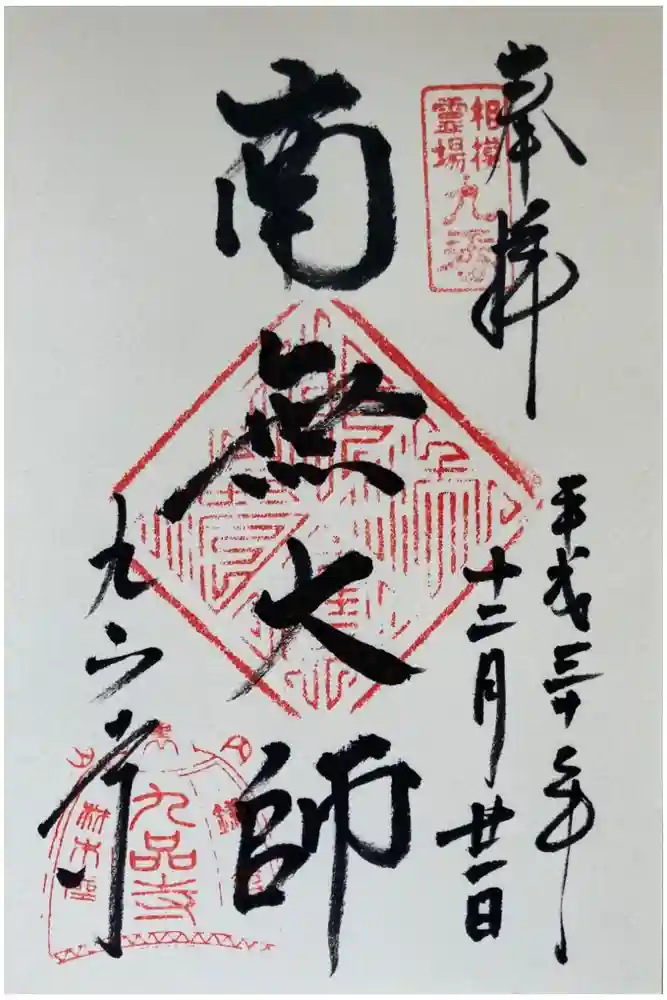 奉拝
相模
靈場
九番
平成三十年
十二月廿一日
南無大師
九品寺
九品寺
材木座